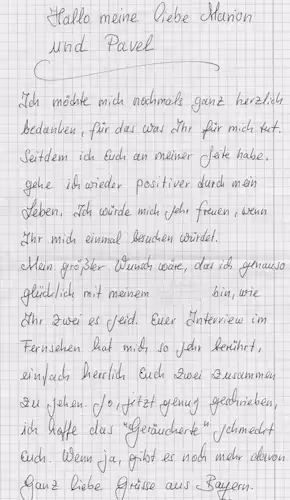 Hallo meine liebe Marion
und Pavel
Ich möchte mich nochmals ganz herzlich
bedanken, für das was Ihr für mich tut.
Seitdem ich Euch an meiner Seite habe,
gehe ich wieder positiver durch mein
Leben. Ich würde mich sehr freuen, wenn
Ihr mich einmal besuchen würdet.
Mein größter Wunsch wäre, das ich genauso
glücklich mit meinem bin, wie
Ihr zwei es seid. Euer Interview im
Fernsehen hat mich so sehr berührt,
einfach herrlich Euch zwei zusammen
zu sehen. So, jetzt genug geschrieben,
ich hoffe das "Geräucherte" schmeckt
Euch. Wenn ja, gibt es noch mehr davon.
Ganz liebe Grüsse aus Bayern.